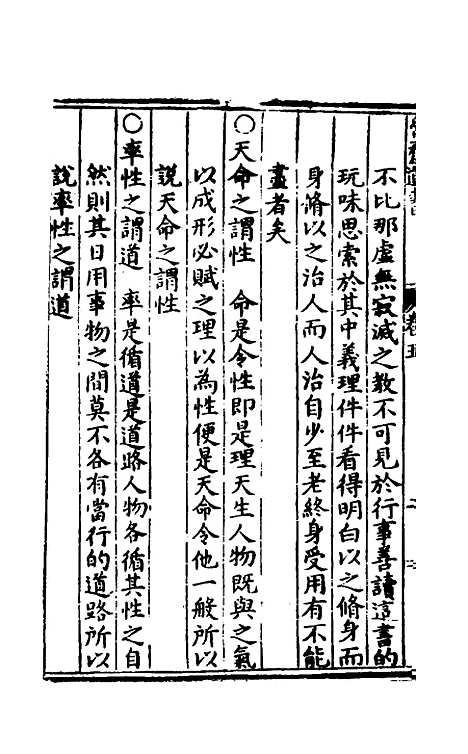 不比那虛無寂滅之教不可見於行事善讀這書的
玩味思索於其中義理件件看得明白以之脩身而
身脩以之治人而人治自少至老終身受用有不能
盡者矣
○天命之謂性　命是令性即是理天生人物既與之氣
以成形必賦之理以為性便是天命令他一般所以
說天命之謂性
○率性之謂道　率是循道是道路人物各循其性之自
然則其日用事物之間莫不各有當行的道路所以
說率性之謂道